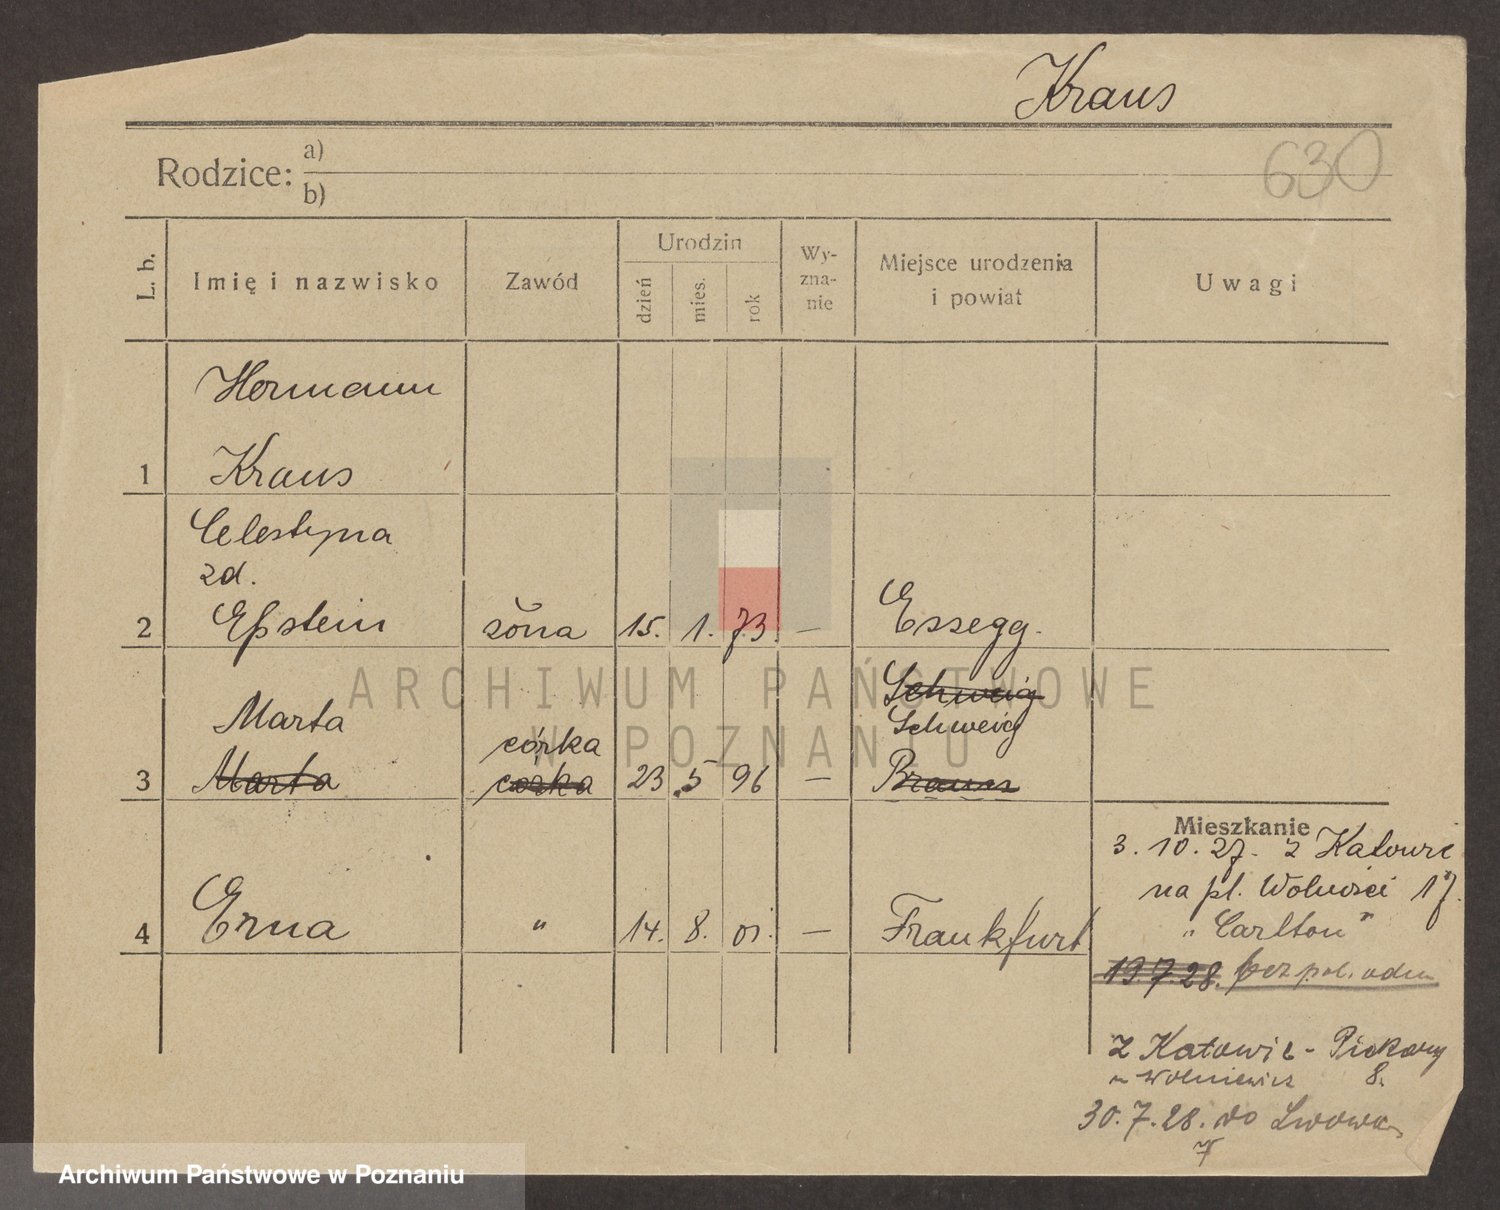 Kraus
630
Rodzice: a)
b)
L. b. Imię i nazwisko Zawód Urodzin dzień mies. rok Wy-zna-nie Miejsce urodzenia i powiat Uwagi
Hermann
1 Kraus
Celestyna
zd.
2 Epstein żona 15. 1. 73. — Essegg.
Schweig
Marta Schweig
córka
3 Marta córka 23 5 96 — Braun
Mieszkanie
3. 10. 27. z Katowic
na pl. Wolności 17.
"Carlton"
4 Erna " 14. 8. 01. — Frankfurt
19.7.28. bez pol.
z Katowic - Piekary
8.
30.7.28. do Lwowa
ARCHIWUM PAŃSTWOWE
W POZNANIU
Archiwum Państwowe w Poznaniu